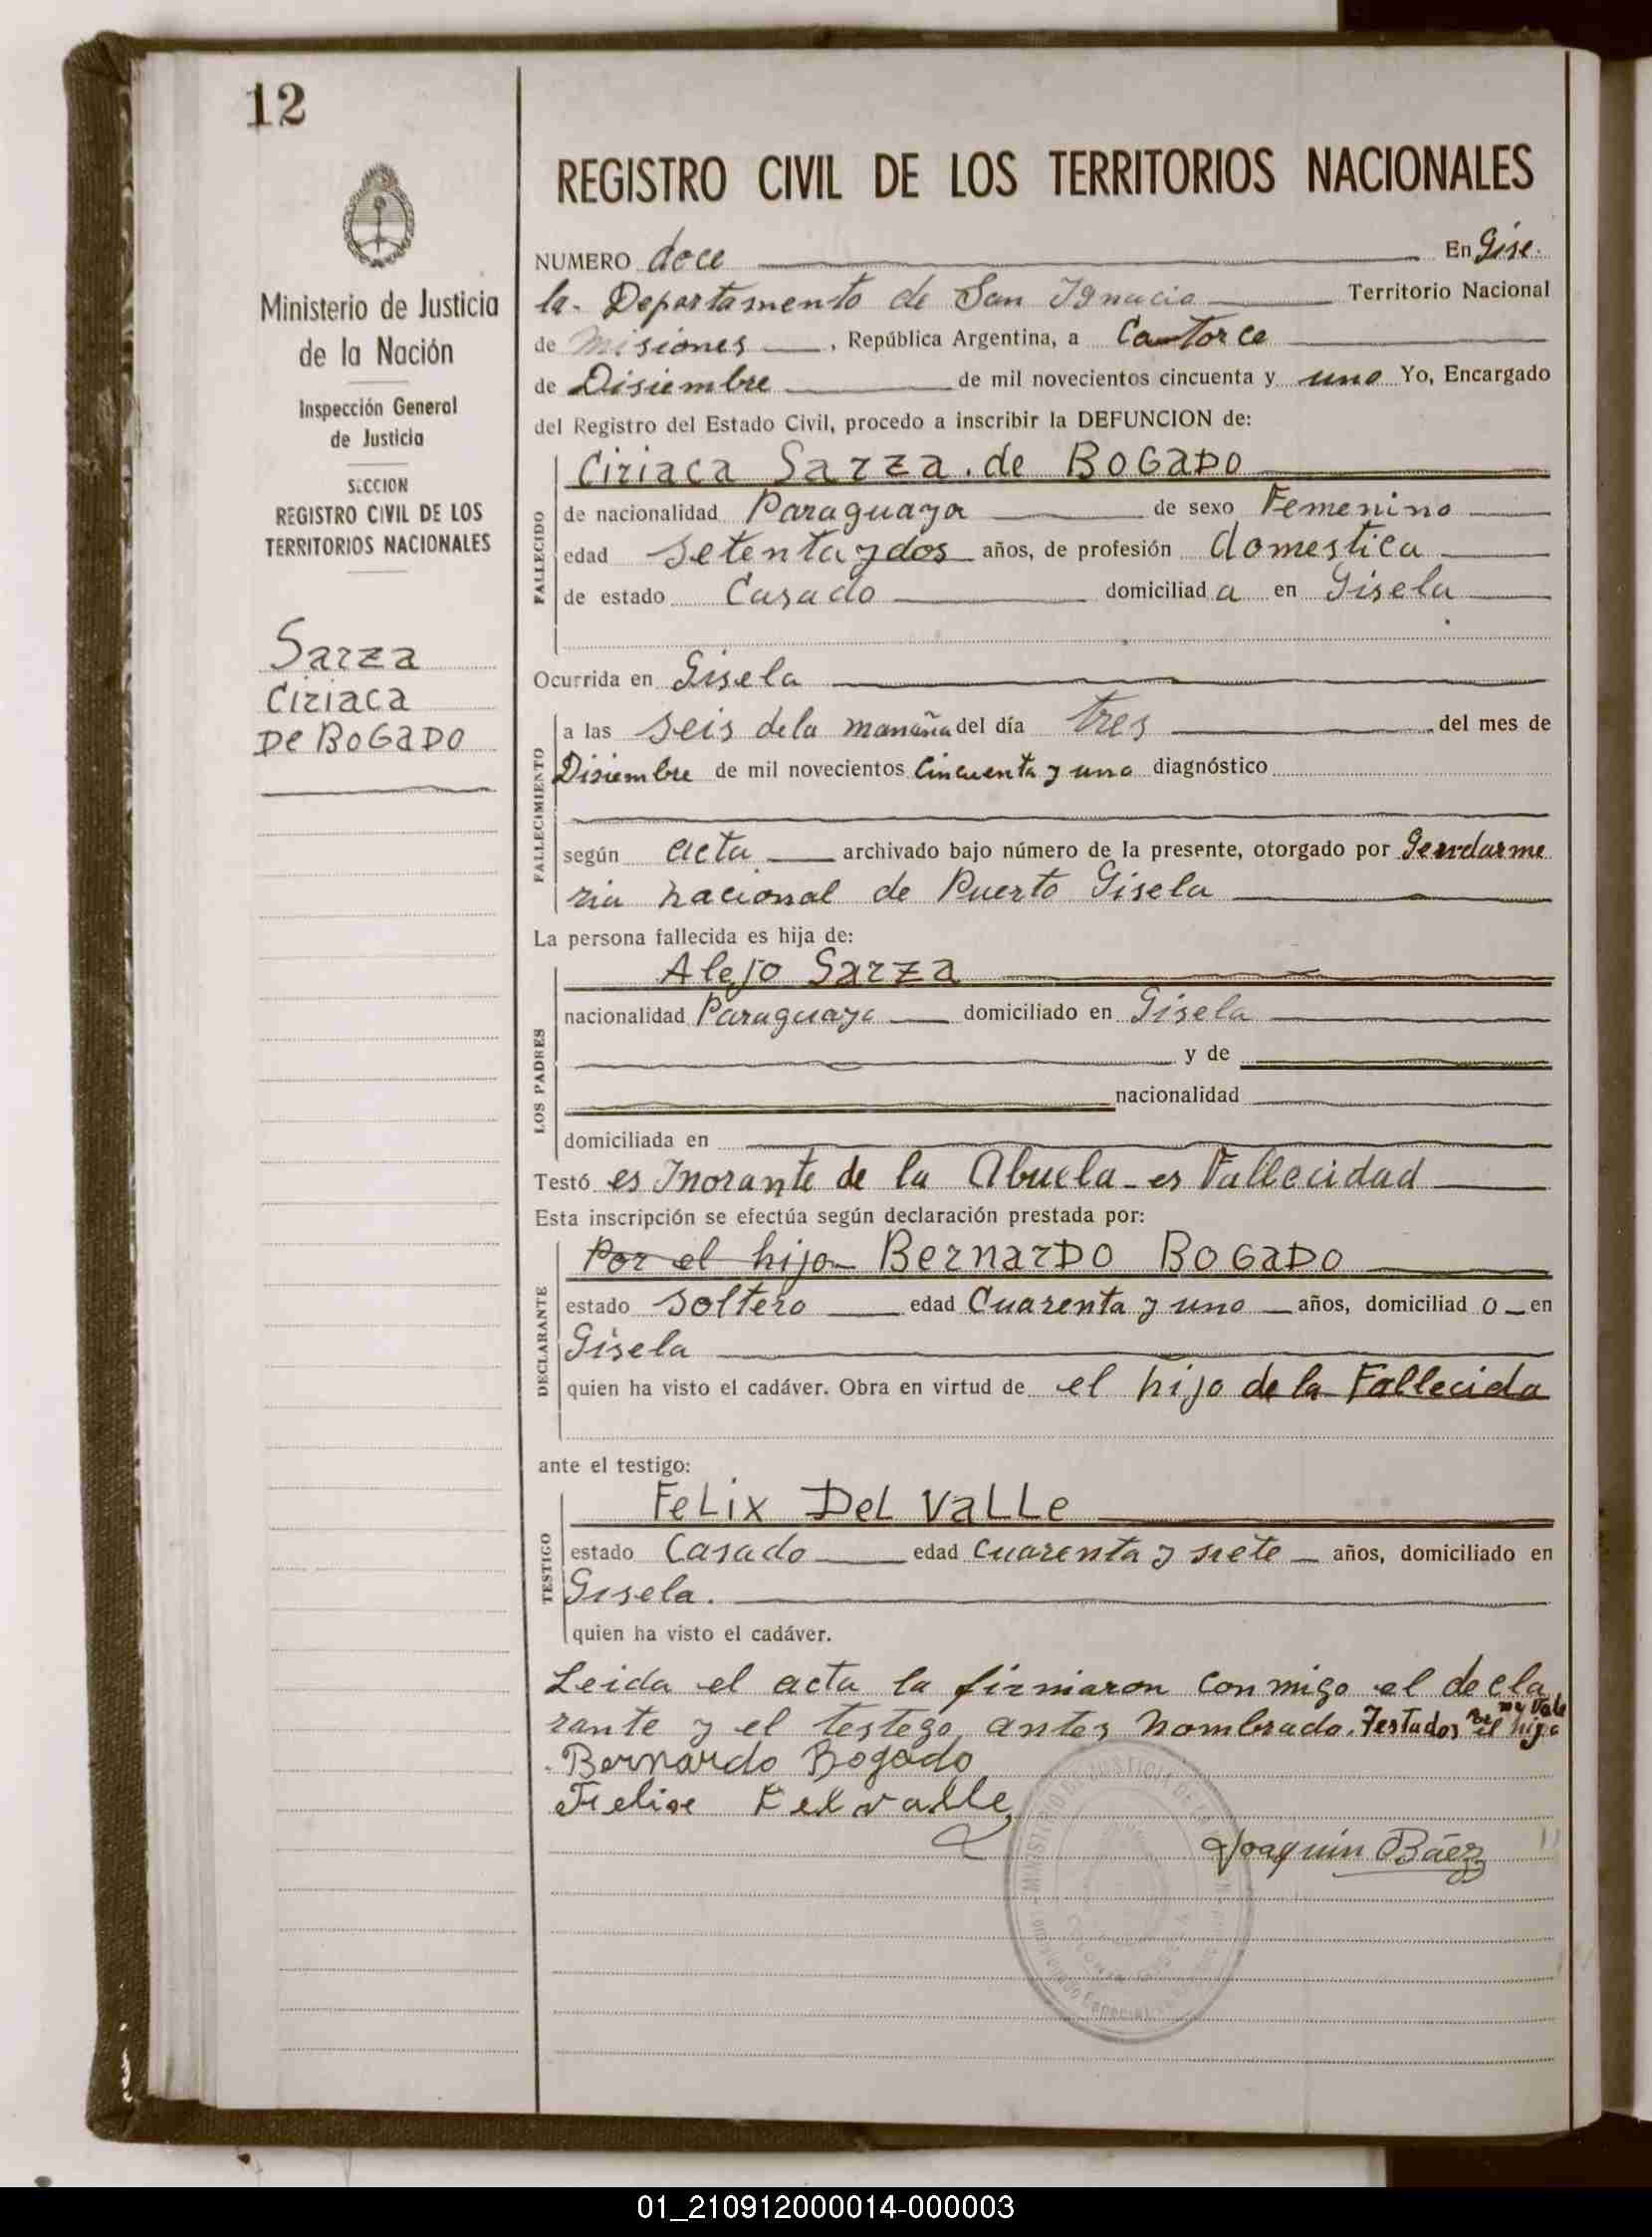 12
Ministerio de Justicia
de la Nación
Inspección General
de Justicia
SECCION
REGISTRO CIVIL DE LOS
TERRITORIOS NACIONALES
Sarza
Ciriaca
De BoGaDo
REGISTRO CIVIL DE LOS TERRITORIOS NACIONALES
NUMERO doce En Gise-
la. Departamento de San Ignacio Territorio Nacional
de Misiones, República Argentina, a Catorce
de Disiembre de mil novecientos cincuenta y uno Yo, Encargado
del Registro del Estado Civil, procedo a inscribir la DEFUNCION de:
Ciriaca Sarza. de BoGaDo
FALLECIDO
de nacionalidad Paraguaya de sexo Femenino
edad setenta y dos años, de profesión domestica
de estado Casado domiciliad a en Gisela
Ocurrida en Gisela
FALLECIMIENTO
a las seis de la manaña del día tres del mes de
Disiembre de mil novecientos Cincuenta y uno diagnóstico
según acta archivado bajo número de la presente, otorgado por Gendarme
ria nacional de Puerto Gisela
La persona fallecida es hija de:
LOS PADRES
Alejo Sarza
nacionalidad Paraguaya domiciliado en Gisela
y de
nacionalidad
domiciliada en
Testó es Inorante de la Abuela - es Fallecidad
Esta inscripción se efectúa según declaración prestada por:
DECLARANTE
Por el hijo Bernardo BoGaDo
estado Soltero edad Cuarenta y uno años, domiciliad o en
Gisela
quien ha visto el cadáver. Obra en virtud de el hijo de la Fallecida
ante el testigo:
TESTIGO
FeLix DeL VaLLe
estado Casado edad Cuarenta y siete años, domiciliado en
Gisela.
quien ha visto el cadáver.
Leida el acta la firmaron conmigo el decla
rante y el testego antes nombrado. Testados
Bernardo Bogado
Felix Delvalle
Joaquín Báez
01_210912000014-000003